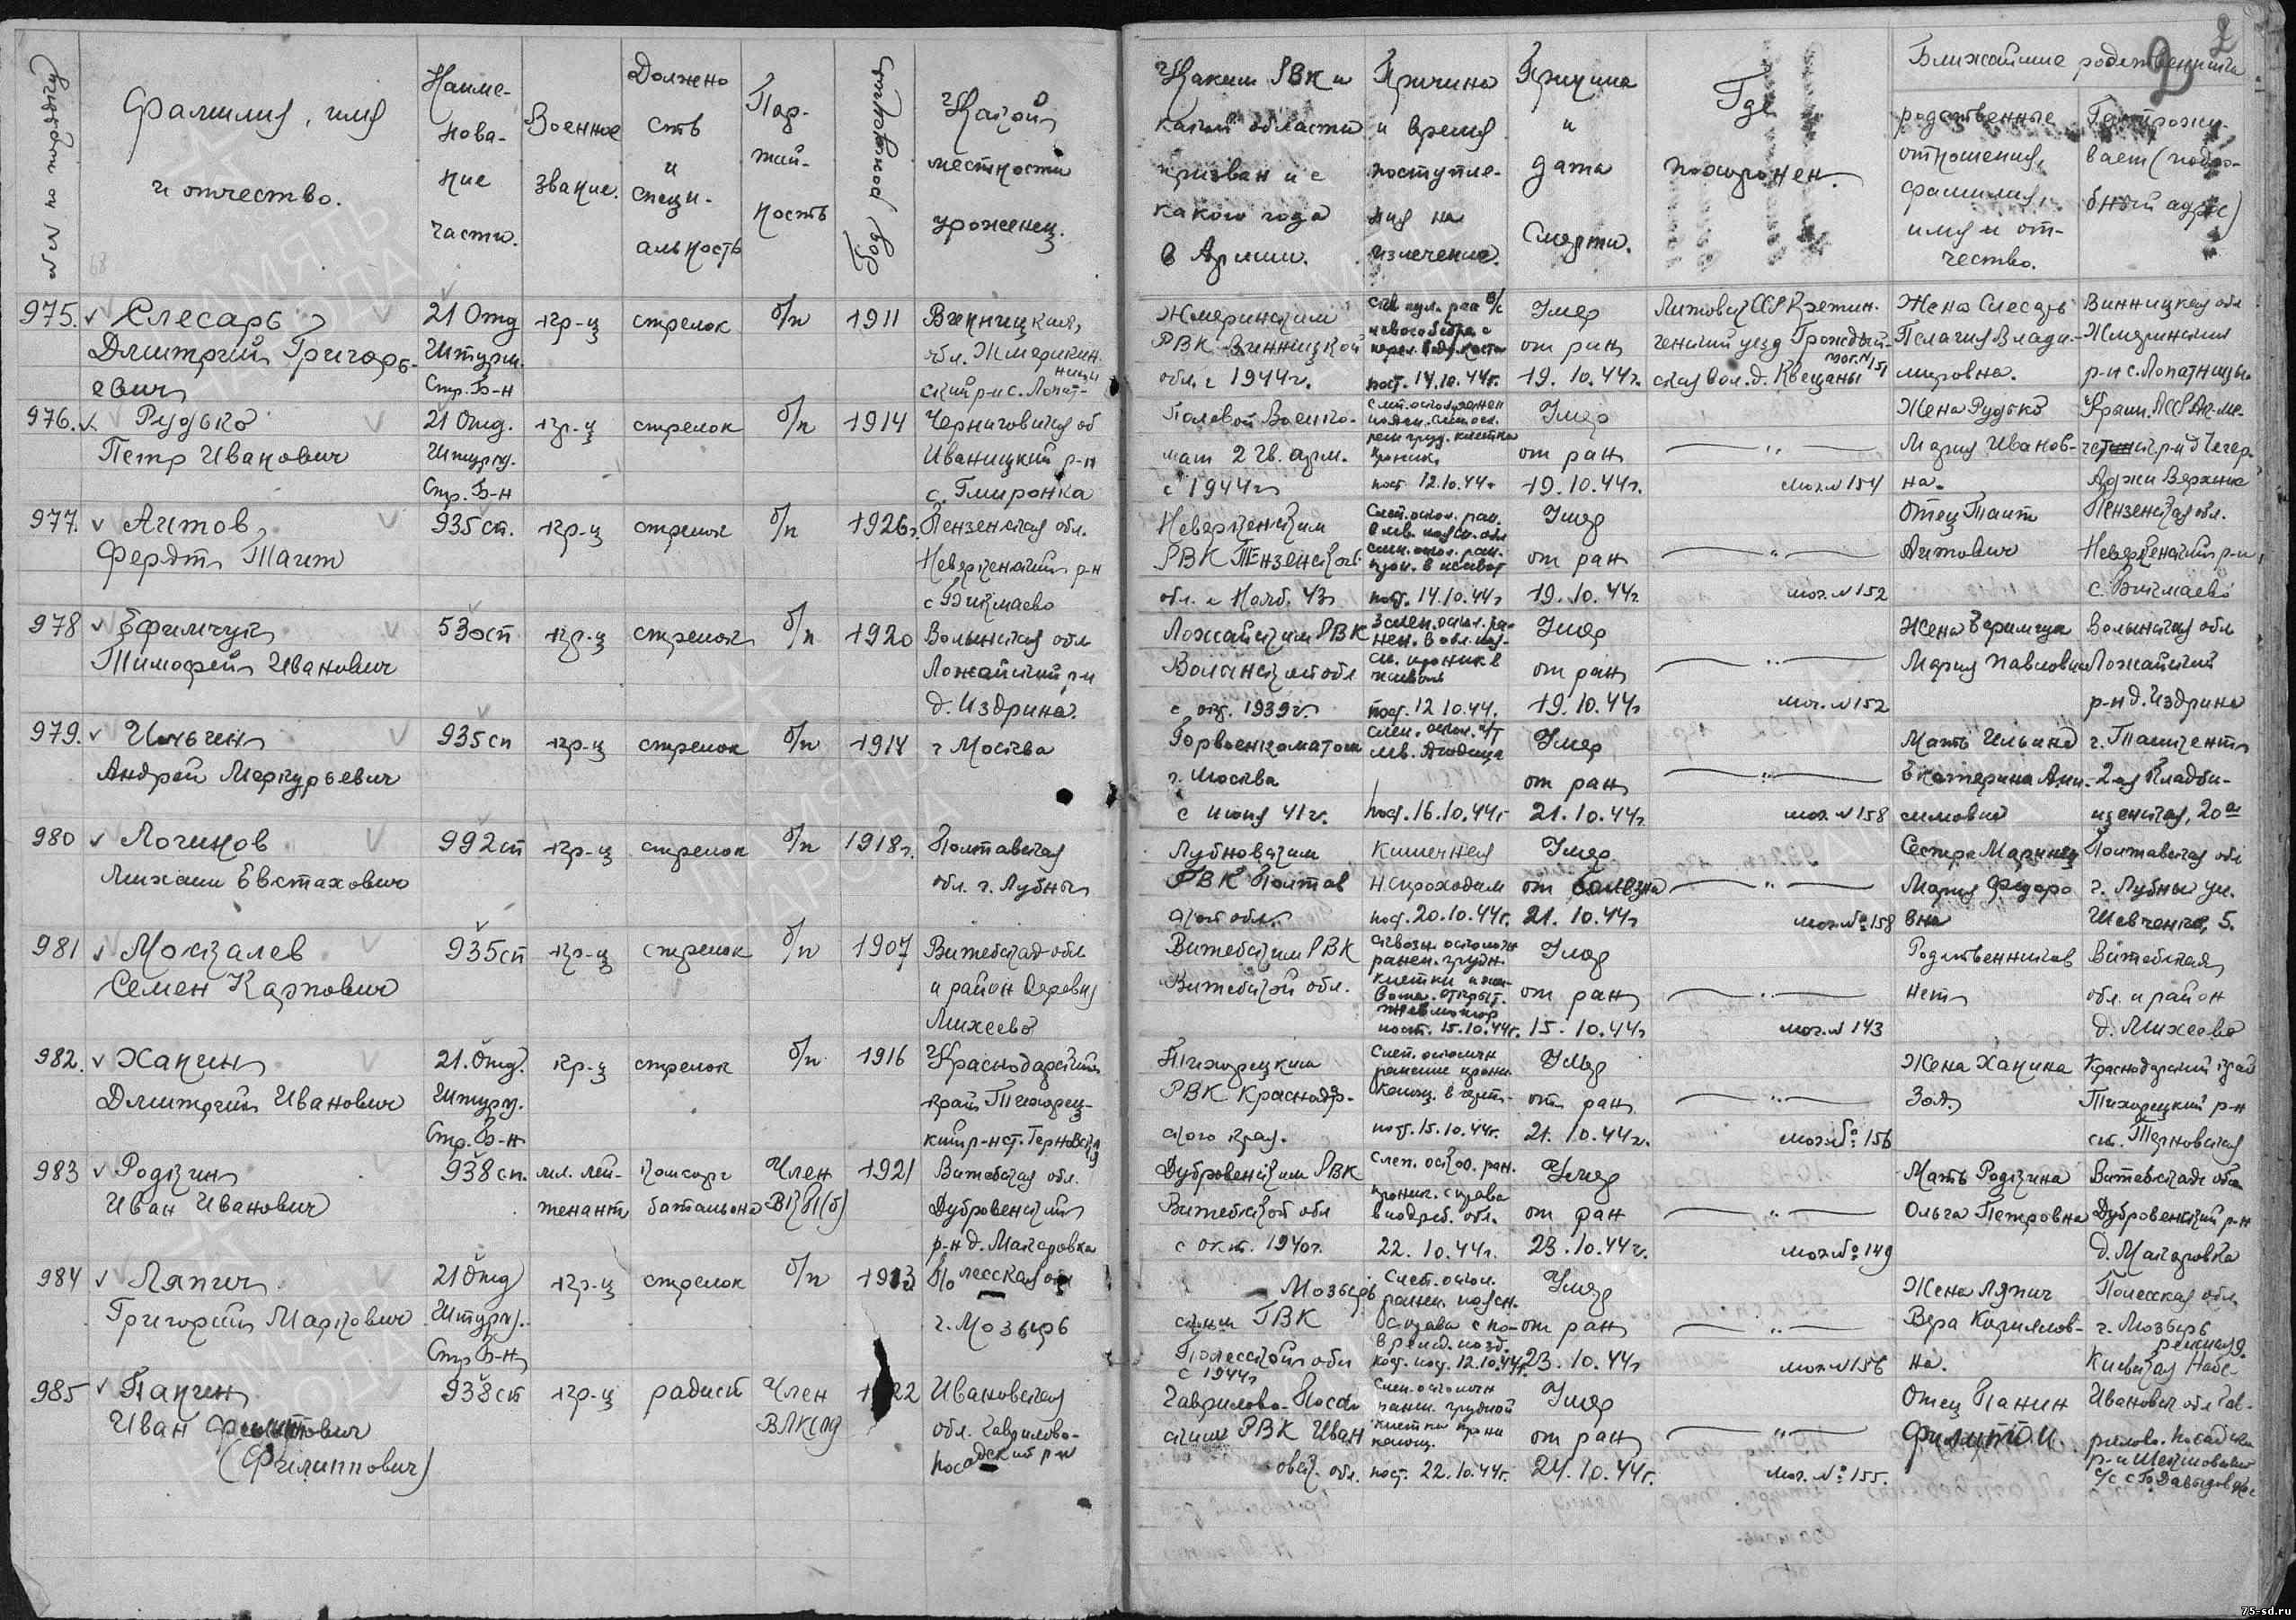 №№ по порядку
Фамилия, имя
и отчество.
Наиме-
нова-
ние
части.
Военное
звание.
Должно
сть
и
специ-
альность
Пар-
тий-
ность
Год рождения
Какой
местности
уроженец.
Каким РВК и
какой области
призван и с
какого года
в Армии.
Причина
и время
поступле-
ния на
излечение.
Причина
и
дата
смерти.
Где
похоронен.
Ближайшие родственники
родственные
отношения,
фамилия,
имя и от-
чество.
Где прожи-
вает (подро-
бный адрес)
2
975. Слесарь
Дмитрий Григорь-
евич
21 Отд
Штурм.
Стр. Б-н
кр-ц
стрелок
б/п
1911
Винницкая,
обл. Жмеринкин
ский р-н с. Лопат-
ницы
Жмеринским
РВК Винницкой
обл. с 1944г.
пост. 14.10.44г.
Умер
от ран
19.10.44г.
Литовск ССР Кретин.
генский уезд Грожд
ская вол. д. Квецаны
мог. №151
Жена Слесарь
Пелагия Влади-
мировна.
Винницкая обл
Жмеринский
р-н с. Лопатницы
976. Рудько
Петр Иванович
21 Отд.
Штурм.
Стр. Б-н
кр-ц
стрелок
б/п
1914
Черниговская об
Иваницкий р-н
с. Гмиронка
Полевой Военко-
мат 2 Гв. арм.
с 1944г
пост 12.10.44г
Умер
от ран
19.10.44г.
— " —
мог. №154
Жена Рудько
Мария Иванов-
на.
Крым. АССР Ак-ме-
977. Аитов
Фердт Таит
935 сп.
кр-ц
стрелок
б/п
1926г.
Пензенская обл.
Неверкенский р-н
с Бикмаево
Неверкенским
РВК Пензенской
обл. с Нояб. 43г
пост. 14.10.44г
Умер
от ран
19.10.44г
— " —
мог. №152
Отец Таит
Аитович
Пензенская обл.
Неверкенский р-н
с. Бикмаево
978 Ефимчук
Тимофей Иванович
530 сп
кр-ц
стрелок
б/п
1920
Волынская обл
Ложайский р-н
д. Издрина.
Ложайским РВК
Волынской обл
с окт. 1939г.
пост. 12 10.44.
Умер
от ран
19.10.44г
— " —
мог. №152
Жена Ефимчук
Мария Павловна
Волынская обл
Ложайский
р-н д. Издрина
979. Ильин
Андрей Меркурьевич
935 сп
кр-ц
стрелок
б/п
1914
г Москва
Горвоенкоматом
г. Москва
с июня 41г.
пост. 16.10.44г
Умер
от ран
21.10.44г.
— " —
мог. №158
Мать Ильина
Екатерина Ани-
симовна
г. Ташкент
2-ая Кладби-
щенская, 20а
980 Логинов
Михаил Евстахович
992 сп
кр-ц
стрелок
б/п
1918г.
Полтавская
обл. г. Лубны
Лубновским
РВК Полтав
ской обл.
Кишечная
Непроходим
пост. 20.10.44г.
Умер
от болезни
21.10.44г
— " —
мог №158
Сестра Маринец
Мария Федоро
вна
Полтавская обл
г. Лубны ул.
Шевченко, 5.
981 Москалев
Семен Карпович
935 сп
кр-ц
стрелок
б/п
1907
Витебская обл
и район деревня
Михеево
Витебским РВК
Витебской обл.
сквозн. осколочн
ранен. грудн.
клетки
пост. 15.10.44г.
Умер
от ран
15.10.44г
— " —
мог. №143
Родственников
нет
Витебская
обл. и район
д. Михеево
982. Ханин
Дмитрий Иванович
21. Отд.
Штурм.
Стр. Б-н
кр-ц
стрелок
б/п
1916
Краснодарский
край Тихорец-
кий р-н ст. Терновская
Тихорецким
РВК Краснодр.
ского края.
пост. 15.10.44г.
Умер
от ран
21.10.44г.
— " —
мог. №: 156
Жена Ханина
Зоя.
Краснодарский край
Тихорецкий р-н
ст. Терновская
983 Родкин
Иван Иванович
938 сп.
мл. лей-
тенант
комсорг
батальона
Член
ВКП(б)
1921
Витебская обл.
Дубровенский
р-н д. Макаровка
Дубровенским РВК
Витебской обл
с окт. 1940г.
Слеп. оскол. ран.
проник. справа
в подреб. обл.
22.10.44г.
Умер
от ран
23.10.44г.
— " —
мог. №: 149
Мать Родкина
Ольга Петровна
Витебская обл
Дубровенский р-н
д. Макаровка
984 Ляпич
Григорий Маркович
21 Отд
Штурм.
Стр Б-н
кр-ц
стрелок
б/п
1913
Полесская обл
г. Мозырь
Мозырь
ским ГВК
Полесской обл
с 1944г
Слеп. оскол.
ранен. поясн.
Умер
от ран
23.10.44г
— " —
мог №156
Жена Ляпич
Вера Кириллов-
на.
Полесская обл.
г. Мозырь
985 Панин
Иван Филиппович
(Филиппович)
938 сп
кр-ц
радист
Член
ВЛКСМ
1922
Ивановская
обл. Гаврилово-
посадский р-н
Гаврилово-Посад
ским РВК Иван
овск. обл.
Слеп. осколочн
ранен. грудной
клетки
пост. 22.10.44г.
Умер
от ран
24.10.44г.
— " —
мог. №: 155.
Отец Панин
Филипп И
Ивановск обл Гав-
рилово. Посадски
75-sd.ru